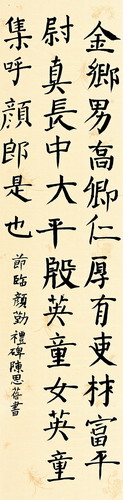 金鄉男喬卿仁厚有吏材富平
尉真長中大平殿英童女英童
集呼顏郎是也
節臨顏勤禮碑陳思蓉書